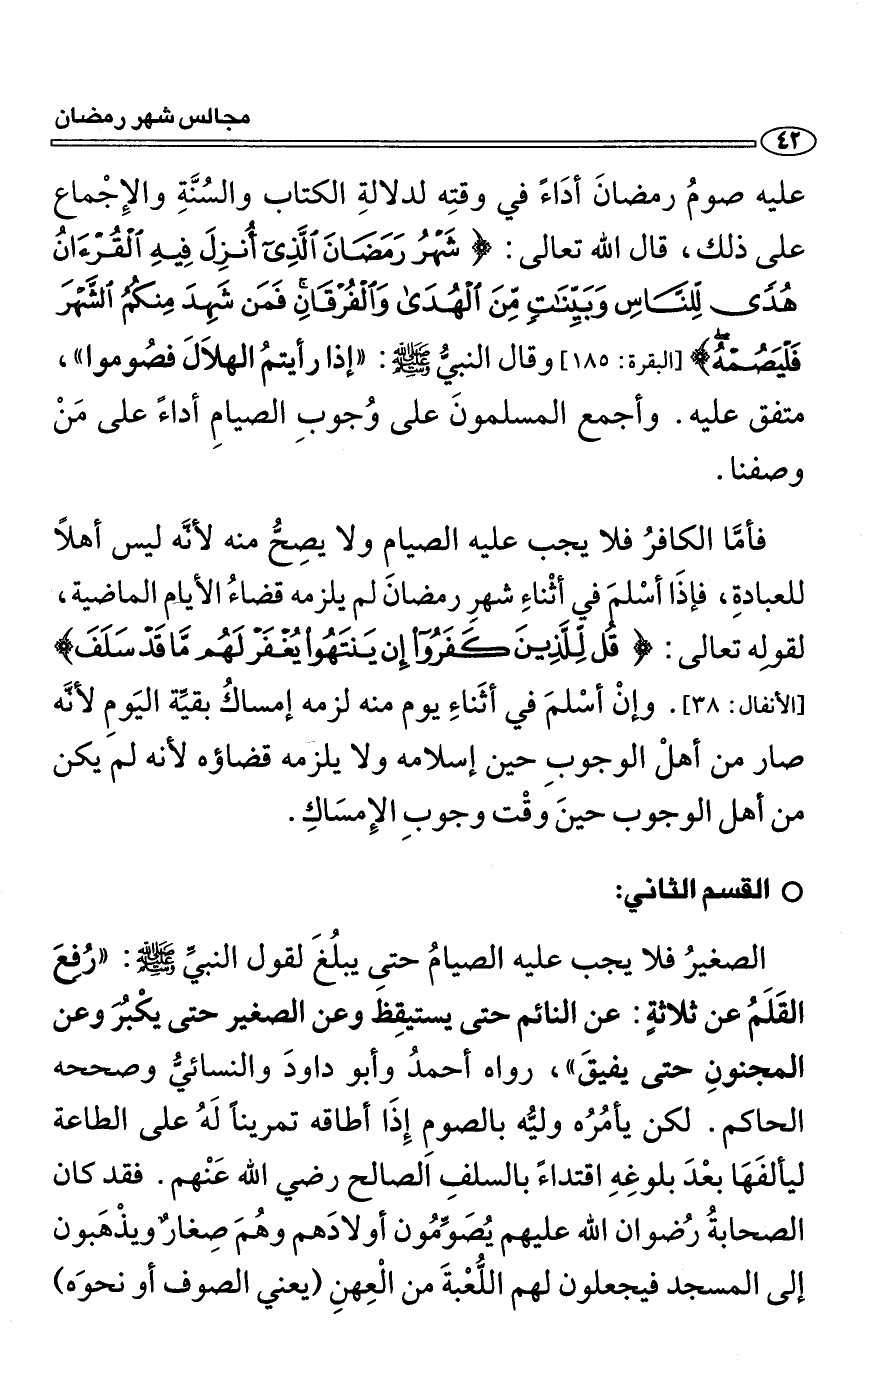 مجالس شهر رمضان
٤٢
عليه صومُ رمضانَ أدَاءً في وقتِه لدلالةِ الكتاب والسُنَّةِ والإِجْماع
على ذلك، قال الله تعالى: ﴿ شَهْرُ رَمَضَانَ ٱلَّذِىٓ أُنزِلَ فِيهِ ٱلْقُرْءَانُ
هُدًى لِّلنَّاسِ وَبَيِّنَٰتٍ مِّنَ ٱلْهُدَىٰ وَٱلْفُرْقَانِۚ فَمَن شَهِدَ مِنكُمُ ٱلشَّهْرَ
فَلْيَصُمْهُۖ﴾ [البقرة: ١٨٥] وقال النبيُّ ﷺ: «إذا رأيتمُ الهلاَلَ فصُوموا»،
متفق عليه. وأجمع المسلمونَ على وُجوبِ الصيامِ أداءً على مَنْ
وصفنا.
فأمَّا الكافرُ فلا يجب عليه الصيام ولا يصِحُّ منه لأنَّه ليس أهلاً
للعبادةِ، فإذَا أسْلمَ في أثْناءِ شهرِ رمضانَ لم يلزمه قضاءُ الأيام الماضية،
لقوله تعالى: ﴿ قُل لِّلَّذِينَ كَفَرُوٓا۟ إِن يَنتَهُوا۟ يُغْفَرْ لَهُم مَّا قَدْ سَلَفَ﴾
[الأنفال: ٣٨]. وإنْ أسْلمَ في أثَناءِ يوم منه لزمه إمساكُ بقيَّة اليَومِ لأنَّه
صار من أهلْ الوجوبِ حين إسلامه ولا يلزمه قضاؤه لأنه لم يكن
من أهل الوجوب حينَ وقْت وجوبِ الإِمسَاكِ.
○ القسم الثاني:
الصغيرُ فلا يجب عليه الصيامُ حتى يبلُغَ لقول النبيِّ ﷺ: «رُفِعَ
القَلَمُ عن ثلاثةٍ: عن النائم حتى يستيقِظَ وعن الصغير حتى يكْبُرَ وعن
المجنونِ حتى يفيقَ»، رواه أحمدُ وأبو داودَ والنسائيُّ وصححه
الحاكم. لكن يأمُرُه وليُّه بالصومِ إِذَا أطاقه تمريناً لَهُ على الطاعة
ليألفَهَا بعْدَ بلوغِهِ اقتداءً بالسلفِ الصالح رضي الله عَنْهم. فقد كان
الصحابةُ رُضوان الله عليهم يُصَوِّمُون أولادَهم وهُمَ صِغارٌ ويذْهَبون
إلى المسجد فيجعلون لهم اللُّعْبةَ من الْعِهنِ (يعني الصوف أو نحوَه)